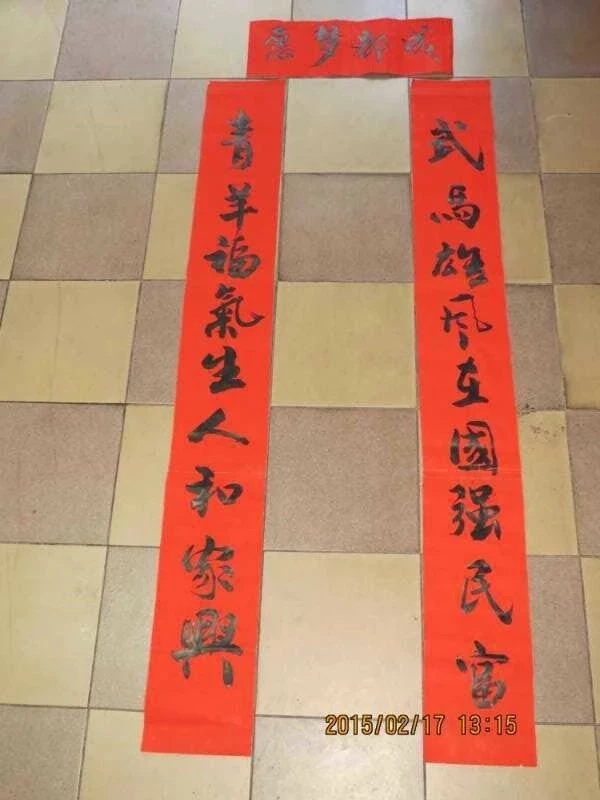 愿梦都成
武馬雄风在國强民富
青羊福氣生人和家興
2015/02/17 13:15